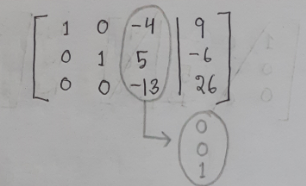 1 0 -4 | 9
0 1 5 | -6
0 0 -13 | 26
0
0
1